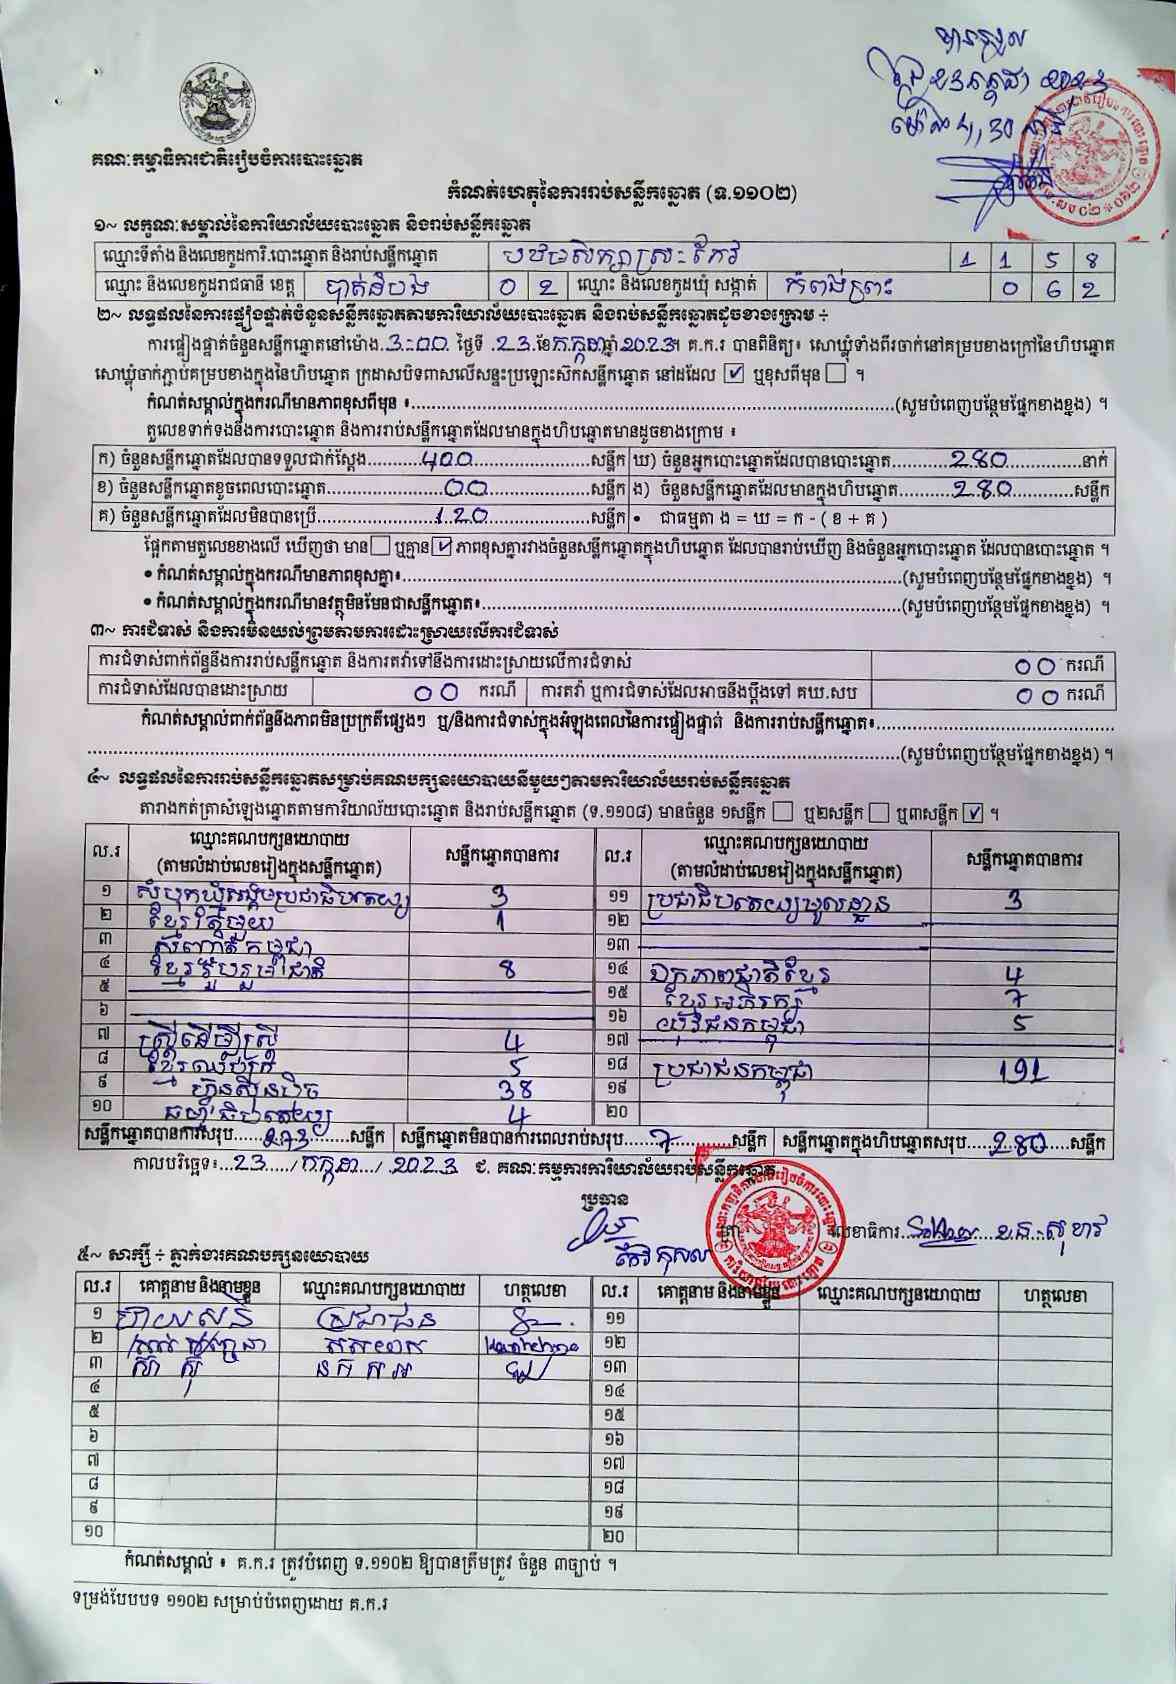 បានទទួល
ថ្ងៃ 23 កក្កដា 2023
ម៉ោង 4,30 នាទី
គណៈកម្មាធិការជាតិរៀបចំការបោះឆ្នោត
កំណត់ហេតុនៃការរាប់សន្លឹកឆ្នោត (ទ.១១០២)
១~ លក្ខណៈសម្គាល់នៃការិយាល័យបោះឆ្នោត និងរាប់សន្លឹកឆ្នោត
ឈ្មោះទីតាំង និងលេខកូដការិ.បោះឆ្នោត និងរាប់សន្លឹកឆ្នោត បឋមសិក្សាស្រះកែវ 1 1 5 8
ឈ្មោះ និងលេខកូដរាជធានី ខេត្ត បាត់ដំបង 0 2 ឈ្មោះ និងលេខកូដឃុំ សង្កាត់ កំពង់ព្រះ 0 6 2
២~ លទ្ធផលនៃការផ្ទៀងផ្ទាត់ចំនួនសន្លឹកឆ្នោតតាមការិយាល័យបោះឆ្នោត និងរាប់សន្លឹកឆ្នោតដូចខាងក្រោម ÷
ការផ្ទៀងផ្ទាត់ចំនួនសន្លឹកឆ្នោតនៅម៉ោង 3:00 ថ្ងៃទី 23 ខែ កក្កដា ឆ្នាំ 2023 ។ គ.ក.រ បានពិនិត្យ៖ សោឃ្លុំទាំងពីរចាក់នៅគម្របខាងក្រៅនៃហិបឆ្នោត
សោឃ្លុំចាក់ភ្ជាប់គម្របខាងក្នុងនៃហិបឆ្នោត ក្រដាសបិទពាសលើសន្ទះប្រឡោះស៊កសន្លឹកឆ្នោត នៅដដែល ✓ ឬខុសពីមុន ។
កំណត់សម្គាល់ក្នុងករណីមានភាពខុសពីមុន ៖..........(សូមបំពេញបន្ថែមផ្នែកខាងខ្នង) ។
តួលេខទាក់ទងនឹងការបោះឆ្នោត និងការរាប់សន្លឹកឆ្នោតដែលមានក្នុងហិបឆ្នោតមានដូចខាងក្រោម ៖
ក) ចំនួនសន្លឹកឆ្នោតដែលបានទទួលជាក់ស្ដែង 400 សន្លឹក ឃ) ចំនួនអ្នកបោះឆ្នោតដែលបានបោះឆ្នោត 280 នាក់
ខ) ចំនួនសន្លឹកឆ្នោតខូចពេលបោះឆ្នោត 00 សន្លឹក ង) ចំនួនសន្លឹកឆ្នោតដែលមានក្នុងហិបឆ្នោត 280 សន្លឹក
គ) ចំនួនសន្លឹកឆ្នោតដែលមិនបានប្រើ 120 សន្លឹក • ជាធម្មតា ង = ឃ = ក - ( ខ + គ )
ផ្អែកតាមតួលេខខាងលើ ឃើញថា មាន ឬគ្មាន ✓ ភាពខុសគ្នារវាងចំនួនសន្លឹកឆ្នោតក្នុងហិបឆ្នោត ដែលបានរាប់ឃើញ និងចំនួនអ្នកបោះឆ្នោត ដែលបានបោះឆ្នោត ។
• កំណត់សម្គាល់ក្នុងករណីមានភាពខុសគ្នា៖..........(សូមបំពេញបន្ថែមផ្នែកខាងខ្នង) ។
• កំណត់សម្គាល់ក្នុងករណីមានវត្ថុមិនមែនជាសន្លឹកឆ្នោត៖..........(សូមបំពេញបន្ថែមផ្នែកខាងខ្នង) ។
៣~ ការជំទាស់ និងការមិនយល់ព្រមតាមការដោះស្រាយលើការជំទាស់
ការជំទាស់ពាក់ព័ន្ធនឹងការរាប់សន្លឹកឆ្នោត និងការតវ៉ាទៅនឹងការដោះស្រាយលើការជំទាស់ 00 ករណី
ការជំទាស់ដែលបានដោះស្រាយ 00 ករណី ការតវ៉ា ឬការជំទាស់ដែលអាចនឹងប្ដឹងទៅ គឃ.សប 00 ករណី
កំណត់សម្គាល់ពាក់ព័ន្ធនឹងភាពមិនប្រក្រតីផ្សេងៗ ឬ/និងការជំទាស់ក្នុងអំឡុងពេលនៃការផ្ទៀងផ្ទាត់ និងការរាប់សន្លឹកឆ្នោត៖..........
..........(សូមបំពេញបន្ថែមផ្នែកខាងខ្នង) ។
៤~ លទ្ធផលនៃការរាប់សន្លឹកឆ្នោតសម្រាប់គណបក្សនយោបាយនីមួយៗតាមការិយាល័យរាប់សន្លឹកឆ្នោត
តារាងកត់ត្រាសំឡេងឆ្នោតតាមការិយាល័យបោះឆ្នោត និងរាប់សន្លឹកឆ្នោត (ទ.១១០៨) មានចំនួន ១សន្លឹក ឬ២សន្លឹក ឬ៣សន្លឹក ✓ ។
ល.រ ឈ្មោះគណបក្សនយោបាយ (តាមលំដាប់លេខរៀងក្នុងសន្លឹកឆ្នោត) សន្លឹកឆ្នោតបានការ ល.រ ឈ្មោះគណបក្សនយោបាយ (តាមលំដាប់លេខរៀងក្នុងសន្លឹកឆ្នោត) សន្លឹកឆ្នោតបានការ
១ សំបុកឃ្មុំសង្គមប្រជាធិបតេយ្យ 3 ១១ ប្រជាធិបតេយ្យមូលដ្ឋាន 3
២ ខ្មែរតែមួយ 1 ១២
៣ សញ្ជាតិកម្ពុជា ១៣
៤ ខ្មែររួបរួមជាតិ 8 ១៤ ឯកភាពជាតិខ្មែរ 4
៥ ១៥ ខ្មែរអភិរក្ស 7
៦ ១៦ យុវជនកម្ពុជា 5
៧ ស្ត្រីដើម្បីស្ត្រី 4 ១៧
៨ ខ្មែរឈប់ក្រ 5 ១៨ ប្រជាជនកម្ពុជា 191
៩ ហ៊្វុនស៊ិនប៉ិច 38 ១៩
១០ ធម្មាធិបតេយ្យ 4 ២០
សន្លឹកឆ្នោតបានការសរុប 273 សន្លឹក សន្លឹកឆ្នោតមិនបានការពេលរាប់សរុប 7 សន្លឹក សន្លឹកឆ្នោតក្នុងហិបឆ្នោតសរុប 280 សន្លឹក
កាលបរិច្ឆេទ៖ 23 / កក្កដា / 2023 ជ. គណៈកម្មការការិយាល័យរាប់សន្លឹកឆ្នោត
ប្រធាន
កែវ កុសល
លេខាធិការ
៥~ សាក្សី ÷ ភ្នាក់ងារគណបក្សនយោបាយ
ល.រ គោត្តនាម និងនាមខ្លួន ឈ្មោះគណបក្សនយោបាយ ហត្ថលេខា ល.រ គោត្តនាម និងនាមខ្លួន ឈ្មោះគណបក្សនយោបាយ ហត្ថលេខា
១ ប្រជាជន ១១
២ ១២
៣ ១៣
៤ ១៤
៥ ១៥
៦ ១៦
៧ ១៧
៨ ១៨
៩ ១៩
១០ ២០
កំណត់សម្គាល់ ៖ គ.ក.រ ត្រូវបំពេញ ទ.១១០២ ឱ្យបានត្រឹមត្រូវ ចំនួន ៣ច្បាប់ ។
ទម្រង់បែបបទ ១១០២ សម្រាប់បំពេញដោយ គ.ក.រ